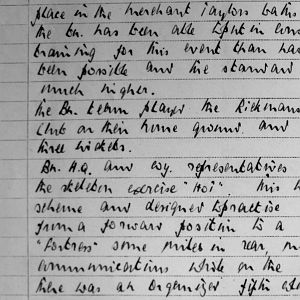 place in the Merchant Taylors baths
the Bn. has been able to put in
training for this event than has
been possible and the standard
much higher.
The Bn. team played the Rickmans
Club on their home ground and
three wickets.
Bn. H.Q. and Coy. representatives
the skeleton exercise "HOT". This
scheme and designed to practise
from a forward position to a
"Fortress" some miles in rear
communications while on the
there was an organized fifth